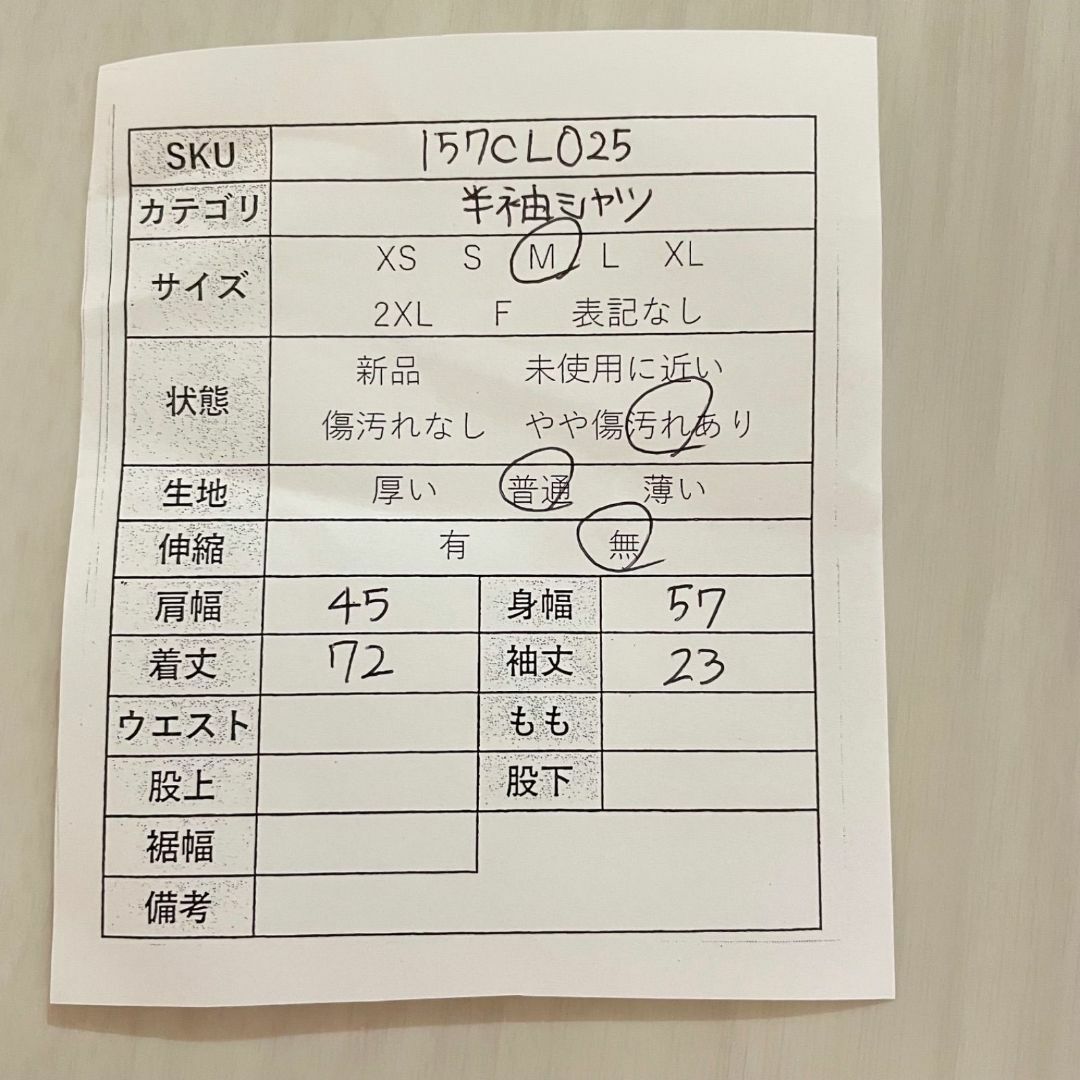 SKU 157CL025
カテゴリ 半袖シャツ
サイズ XS S M L XL
2XL F 表記なし
状態 新品 未使用に近い
傷汚れなし やや傷汚れあり
生地 厚い 普通 薄い
伸縮 有 無
肩幅 45 身幅 57
着丈 72 袖丈 23
ウエスト もも
股上 股下
裾幅
備考